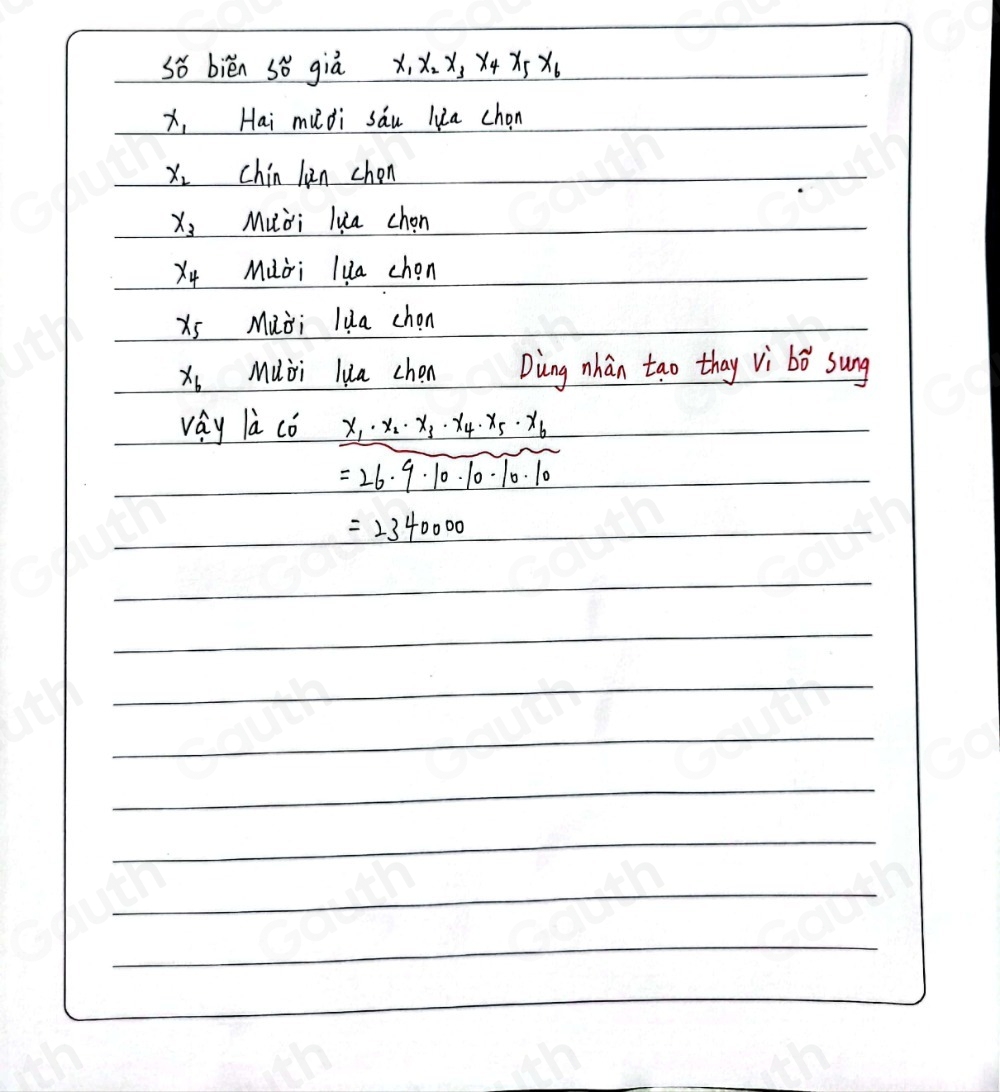 Số biến số giả x₁ x₂ x₃ x₄ x₅ x₆
x₁ Hai mươi sáu lựa chọn
x₂ Chín lựa chọn
x₃ Mười lựa chọn
x₄ Mười lựa chọn
x₅ Mười lựa chọn
x₆ Mười lựa chọn Dùng nhân tạo thay vì bỗ sung
Vậy là có x₁ · x₂ · x₃ · x₄ · x₅ · x₆
= 26 · 9 · 10 · 10 · 10 · 10
= 2340000